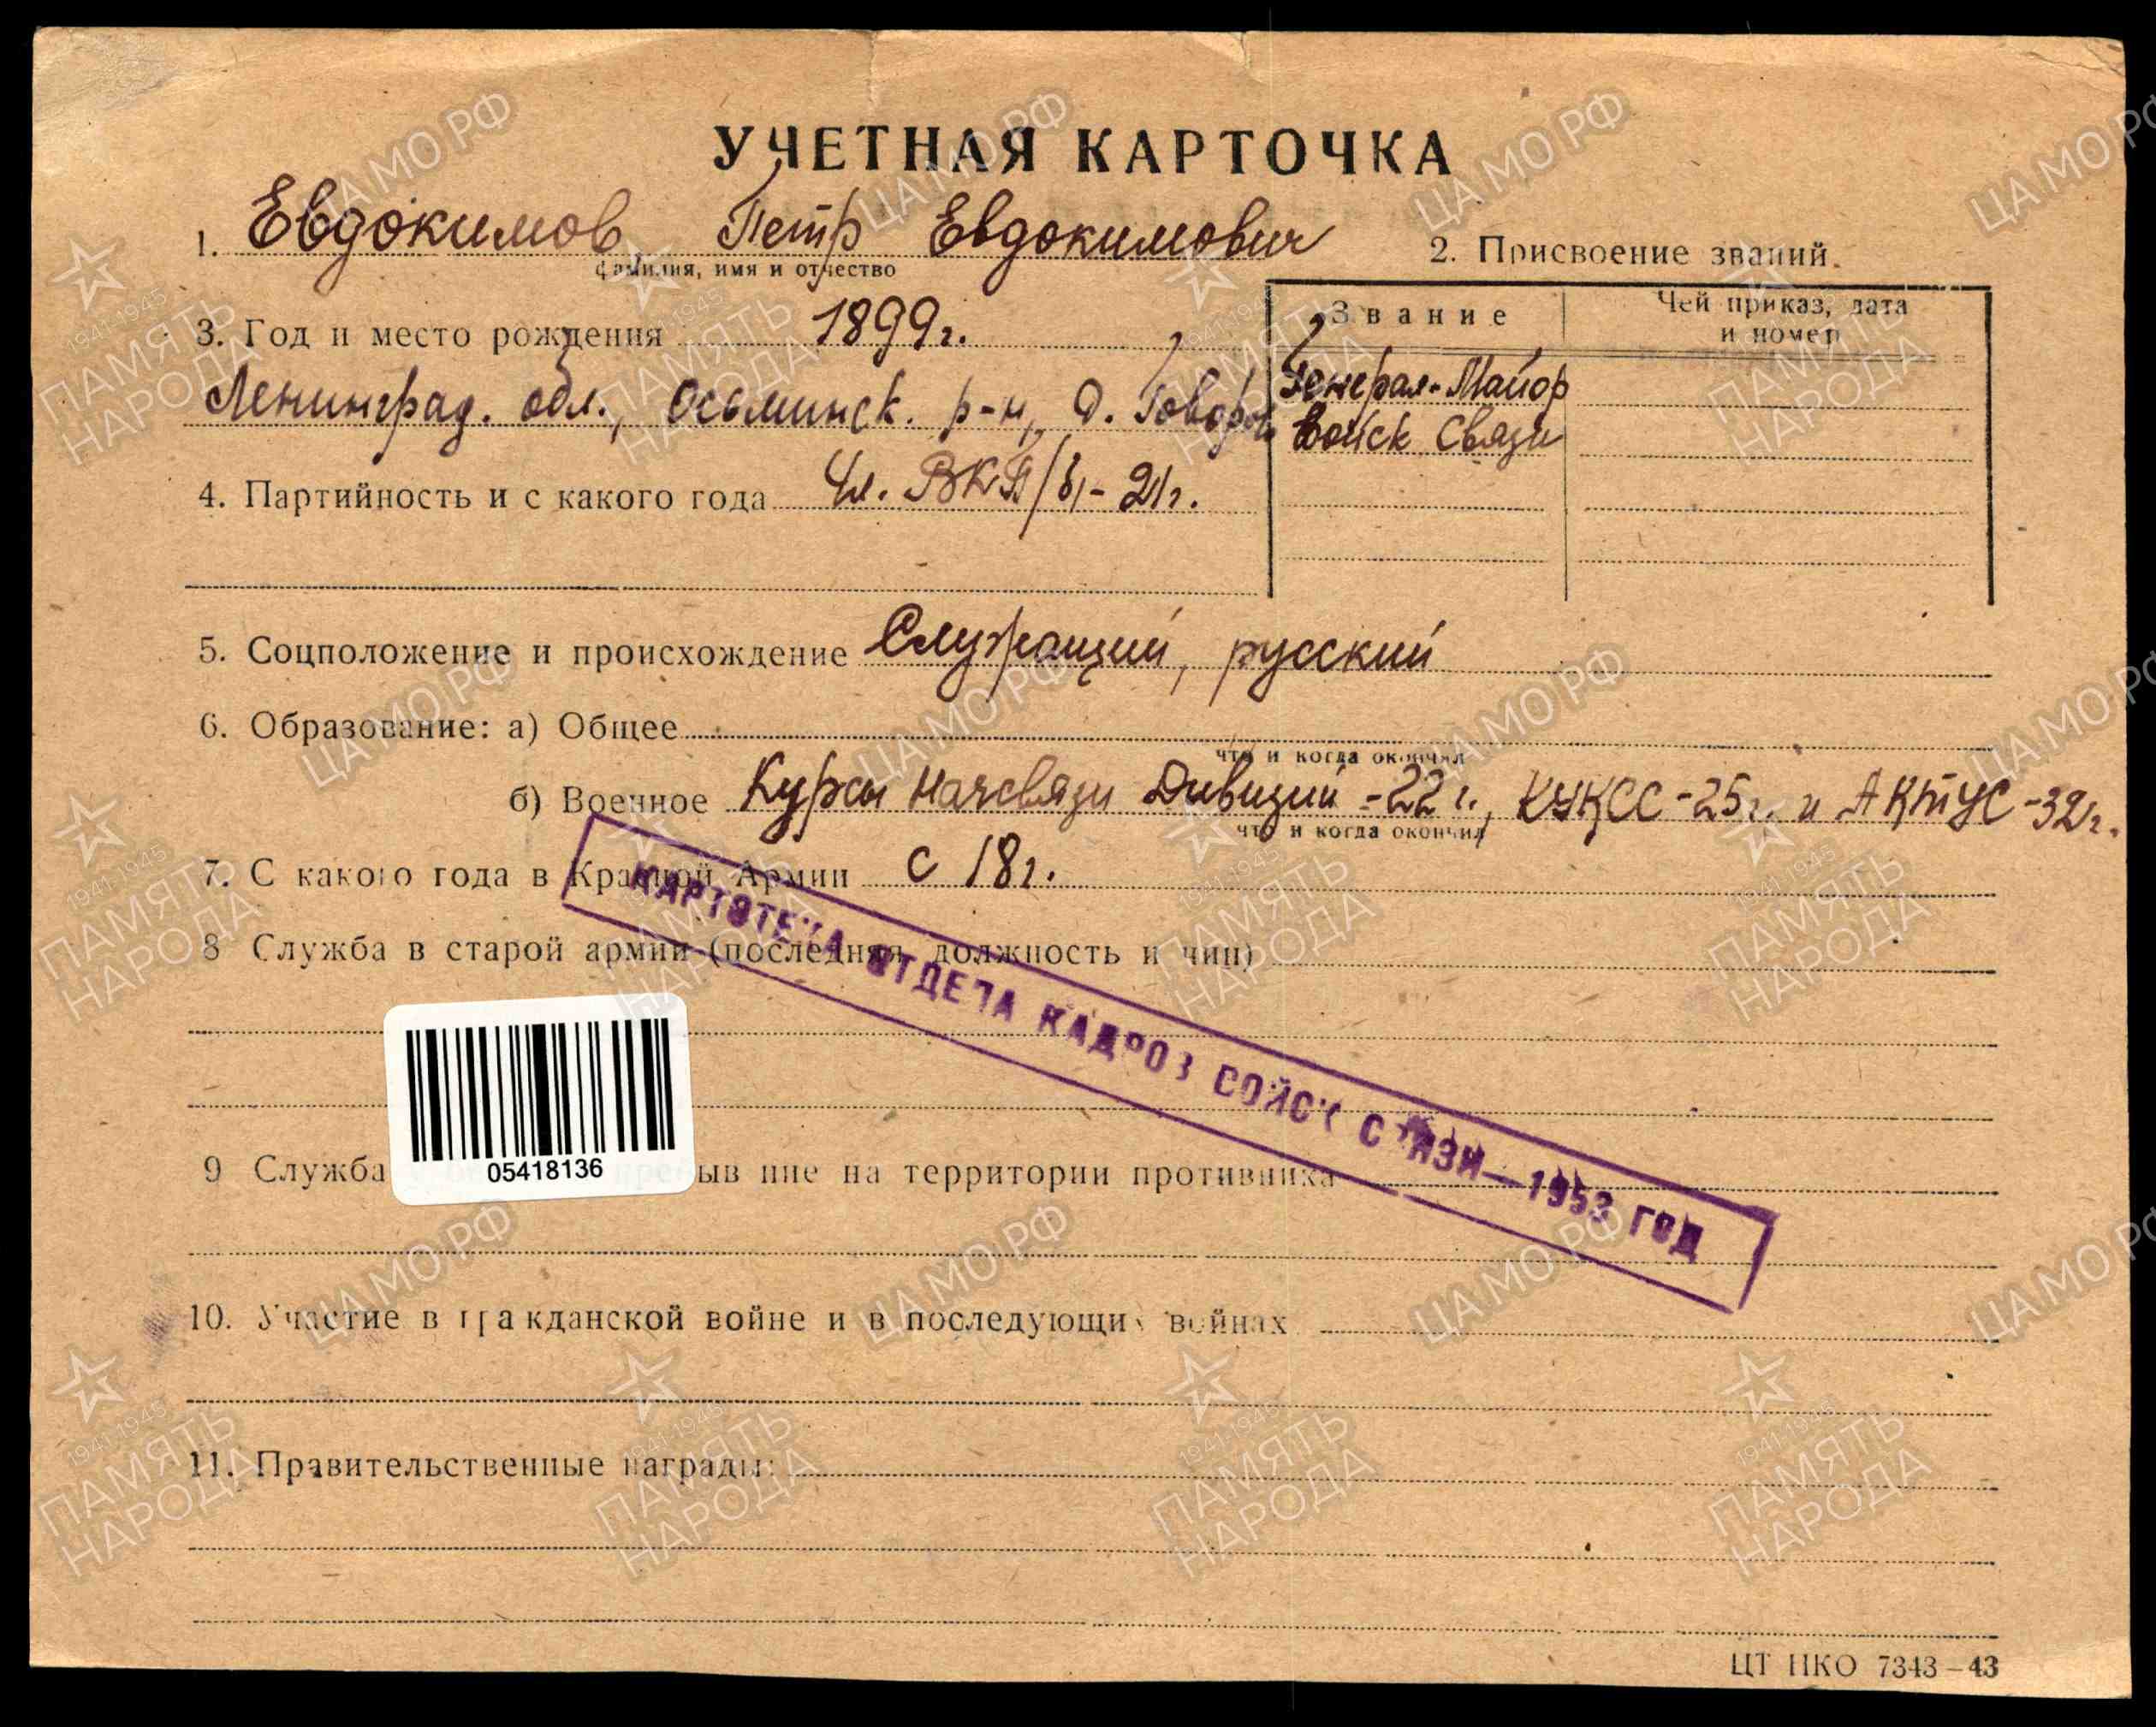 УЧЕТНАЯ КАРТОЧКА
1. Евдокимов Петр Евдокимович
фамилия, имя и отчество
2. Присвоение званий.
3. Год и место рождения 1899г.
Ленинград. обл., Осьминск. р-н, д.
Звание
Чей приказ, дата и номер
Генерал-Майор
Войск Связи
4. Партийность и с какого года Чл. ВКП/б/-21г.
5. Соцположение и происхождение Служащий, русский
6. Образование: а) Общее
что и когда окончил
б) Военное Курсы Начсвязи Дивизий -22г., КУКСС-25г. и АКТУС-32г.
что и когда окончил
7. С какого года в Красной Армии с 18г.
8 Служба в старой армии (последняя должность и чин)
КАРТОТЕКА ОТДЕЛА КАДРОВ ВОЙСК СВЯЗИ—1953 ГОД
05418136
9 Служба на территории противника
10. Участие в гражданской войне и в последующих войнах
11. Правительственные награды:
ЦТ НКО 7343—43
ЦАМО.РФ
1941-1945
ПАМЯТЬ
НАРОДА